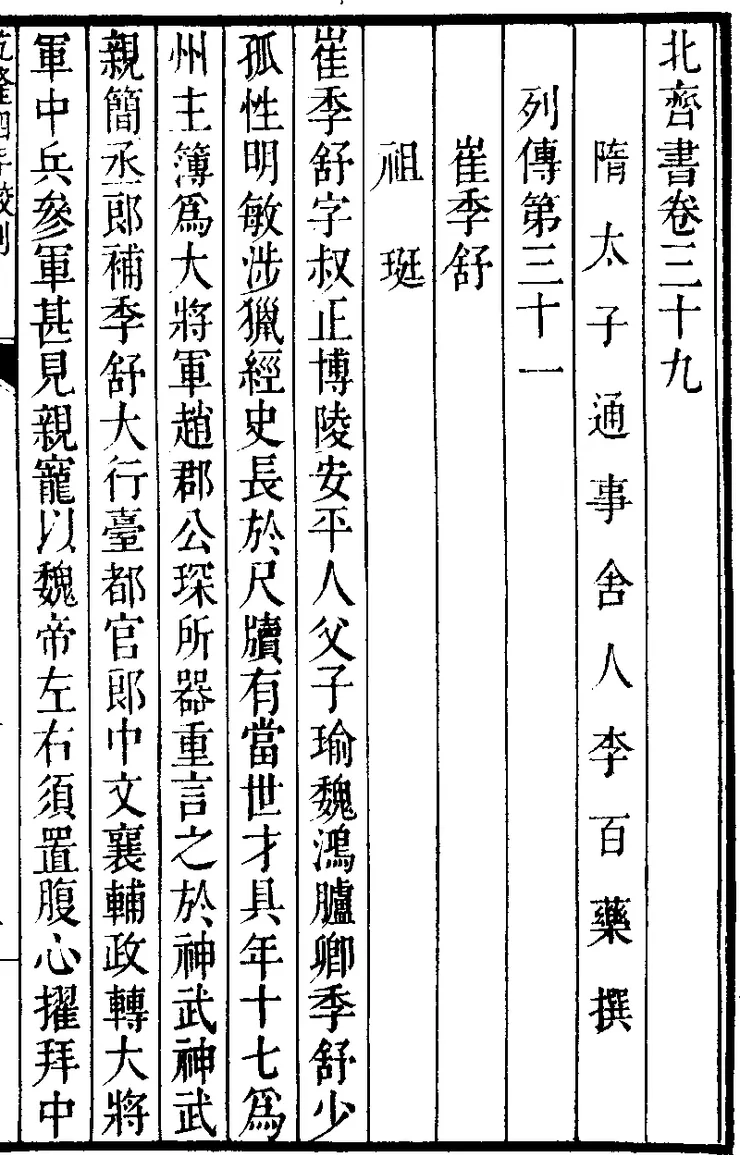 北齊書卷三十九
隋太子通事舍人李百藥撰
列傳第三十一
崔季舒
祖珽
崔季舒字叔正博陵安平人父子瑜魏鴻臚卿季舒少
孤性明敏涉獵經史長於尺牘有當世才具年十七爲
州主簿爲大將軍趙郡公琛所器重言之於神武神武
親簡丞郎補季舒大行臺都官郎中文襄輔政轉大將
軍中兵參軍甚見親寵以魏帝左右須置腹心擢拜中